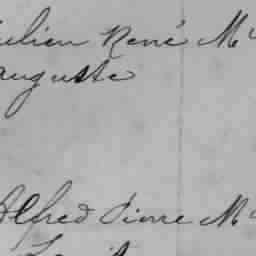 ulien René M
auguste
Alfred Pierre M